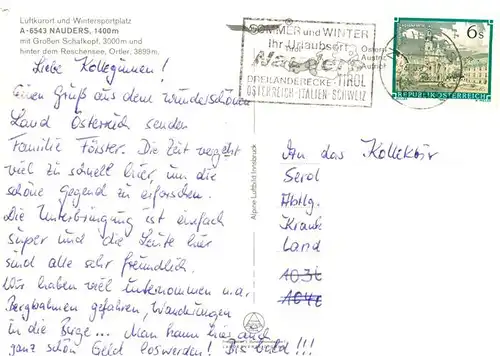 Luftkurort und Wintersportplatz
A-6543 NAUDERS, 1400m
mit Großen Schafkopf, 3000m und
hinter dem Reschensee, Ortler, 3899m.
SOMMER und WINTER
Ihr Urlaubsort
Nauders
DREILÄNDERECKE-TIROL
ÖSTERREICH-ITALIEN-SCHWEIZ
6s
REPUBLIK ÖSTERREICH
Liebe Kolleginnen!
Einen Gruß aus dem wunderschönen
Land Österreich senden
Familie Förster. Die Zeit vergeht
viel zu schnell hier, um die
schöne Gegend zu erforschen.
Die Unterbringung ist einfach
super und die Leute hier
sind alle sehr freundlich.
Wir haben viel unternommen u.a.
Bergbahnen gefahren, Wanderungen
in die Berge... Man kann hier auch
ganz schön Geld loswerden! Bis bald!!!
Alpine Luftbild Innsbruck
An das Kollektiv
Abtlg.
Land